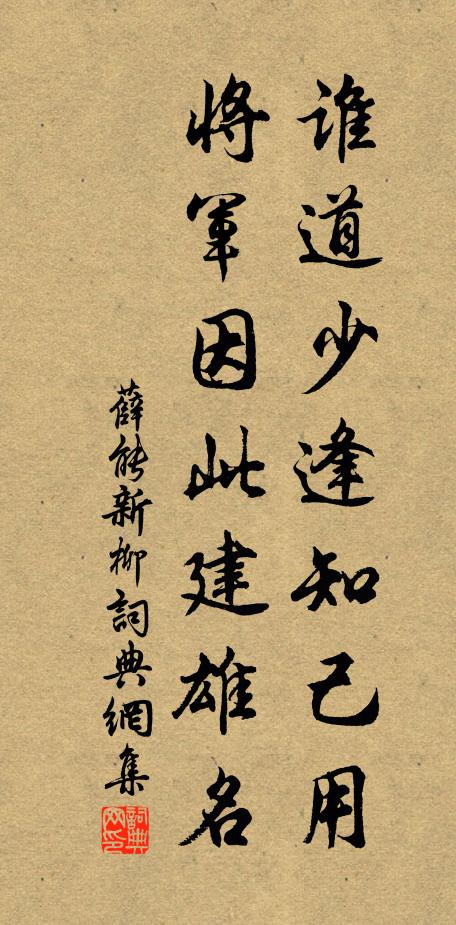 誰道少逢知己用
將軍因此建雄名
薛能新柳詞典網集
詞典网印